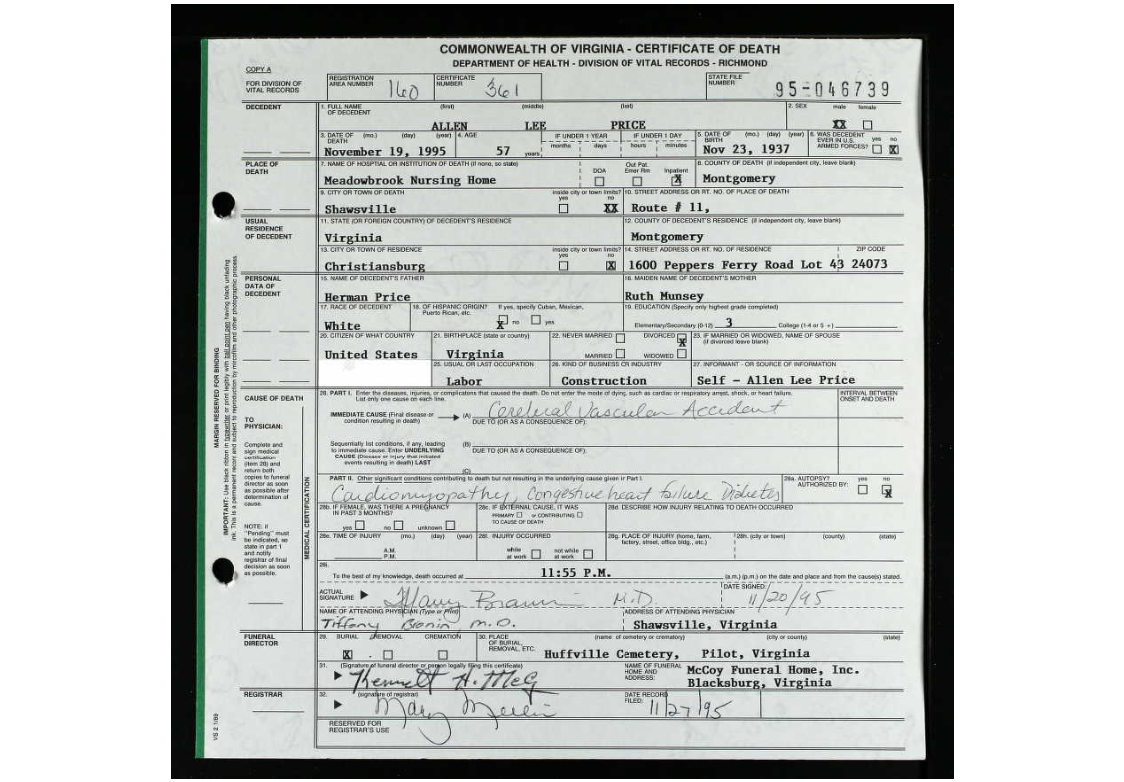 COMMONWEALTH OF VIRGINIA - CERTIFICATE OF DEATH
DEPARTMENT OF HEALTH - DIVISION OF VITAL RECORDS - RICHMOND
COPY A
FOR DIVISION OF VITAL RECORDS
REGISTRATION AREA NUMBER 160 CERTIFICATE NUMBER 361 STATE FILE NUMBER 95-046739
DECEDENT
1. FULL NAME OF DECEDENT (first) (middle) (last) 2. SEX male female
ALLEN LEE PRICE XX
3. DATE OF DEATH (mo.) (day) (year) 4. AGE IF UNDER 1 YEAR IF UNDER 1 DAY 5. DATE OF BIRTH (mo.) (day) (year) 6. WAS DECEDENT EVER IN U.S. ARMED FORCES? yes no
November 19, 1995 57 years months days hours minutes Nov 23, 1937 X
PLACE OF DEATH
7. NAME OF HOSPTIAL OR INSTITUTION OF DEATH (if none, so state) DOA Out Pat. Emer Rm Inpatient 8. COUNTY OF DEATH (if independent city, leave blank)
Meadowbrook Nursing Home X Montgomery
9. CITY OR TOWN OF DEATH inside city or town limits? yes no 10. STREET ADDRESS OR RT. NO. OF PLACE OF DEATH
Shawsville XX Route # 11,
USUAL RESIDENCE OF DECEDENT
11. STATE (OR FOREIGN COUNTRY) OF DECEDENT'S RESIDENCE 12. COUNTY OF DECEDENT'S RESIDENCE (if independent city, leave blank)
Virginia Montgomery
13. CITY OR TOWN OF RESIDENCE inside city or town limits? yes no 14. STREET ADDRESS OR RT. NO. OF RESIDENCE ZIP CODE
Christiansburg X 1600 Peppers Ferry Road Lot 43 24073
PERSONAL DATA OF DECEDENT
15. NAME OF DECEDENT'S FATHER 16. MAIDEN NAME OF DECEDENT'S MOTHER
Herman Price Ruth Munsey
17. RACE OF DECEDENT 18. OF HISPANIC ORIGIN? If yes, specify Cuban, Mexican, Puerto Rican, etc. 19. EDUCATION (Specify only highest grade completed)
White X no yes Elementary/Secondary (0-12) 3 College (1-4 or 5 +)
20. CITIZEN OF WHAT COUNTRY 21. BIRTHPLACE (state or country) 22. NEVER MARRIED DIVORCED X 23. IF MARRIED OR WIDOWED, NAME OF SPOUSE (if divorced leave blank)
United States Virginia MARRIED WIDOWED
25. USUAL OR LAST OCCUPATION 26. KIND OF BUSINESS OR INDUSTRY 27. INFORMANT - OR SOURCE OF INFORMATION
Labor Construction Self - Allen Lee Price
CAUSE OF DEATH
TO PHYSICIAN:
Complete and sign medical certification (item 28) and return both copies to funeral director as soon as possible after determination of cause.
NOTE: if "Pending" must be indicated, so state in part 1 and notify registrar of final decision as soon as possible.
MEDICAL CERTIFICATION
28. PART I. Enter the diseases, injuries, or complications that caused the death. Do not enter the mode of dying, such as cardiac or respiratory arrest, shock, or heart failure. List only one cause on each line. INTERVAL BETWEEN ONSET AND DEATH
IMMEDIATE CAUSE (Final disease or condition resulting in death) (A) Cerebral Vascular Accident
DUE TO (OR AS A CONSEQUENCE OF):
Sequentially list conditions, if any, leading to immediate cause. Enter UNDERLYING CAUSE (Disease or injury that initiated events resulting in death) LAST (B)
DUE TO (OR AS A CONSEQUENCE OF):
(C)
PART II. Other significant conditions contributing to death but not resulting in the underlying cause given in Part I. 28a. AUTOPSY? AUTHORIZED BY: yes no
Cardiomyopathy, Congestive heart failure Diabetes X
28b. IF FEMALE, WAS THERE A PREGNANCY IN PAST 3 MONTHS? yes no unknown 28c. IF EXTERNAL CAUSE, IT WAS PRIMARY or CONTRIBUTING TO CAUSE OF DEATH 28d. DESCRIBE HOW INJURY RELATING TO DEATH OCCURRED
28e. TIME OF INJURY (mo.) (day) (year) A.M. P.M. 28f. INJURY OCCURRED while at work not while at work 28g. PLACE OF INJURY (home, farm, factory, street, office bldg., etc.) 28h. (city or town) (county) (state)
28i.
To the best of my knowledge, death occurred at 11:55 P.M. (a.m.) (p.m.) on the date and place and from the cause(s) stated.
ACTUAL SIGNATURE M.D. DATE SIGNED: 11/20/95
NAME OF ATTENDING PHYSICIAN (Type or Print) ADDRESS OF ATTENDING PHYSICIAN
Tiffany M.D. Shawsville, Virginia
FUNERAL DIRECTOR
29. BURIAL REMOVAL CREMATION 30. PLACE OF BURIAL, REMOVAL, ETC. (name of cemetery or crematory) (city or county) (state)
X Huffville Cemetery, Pilot, Virginia
31. (Signature of funeral director or person legally filing this certificate) NAME OF FUNERAL HOME AND ADDRESS: McCoy Funeral Home, Inc.
Kenneth H. Blacksburg, Virginia
REGISTRAR
32. (signature of registrar) DATE RECORD FILED: 11/27/95
Mary
RESERVED FOR REGISTRAR'S USE
MARGIN RESERVED FOR BINDING
VS 2 1/89